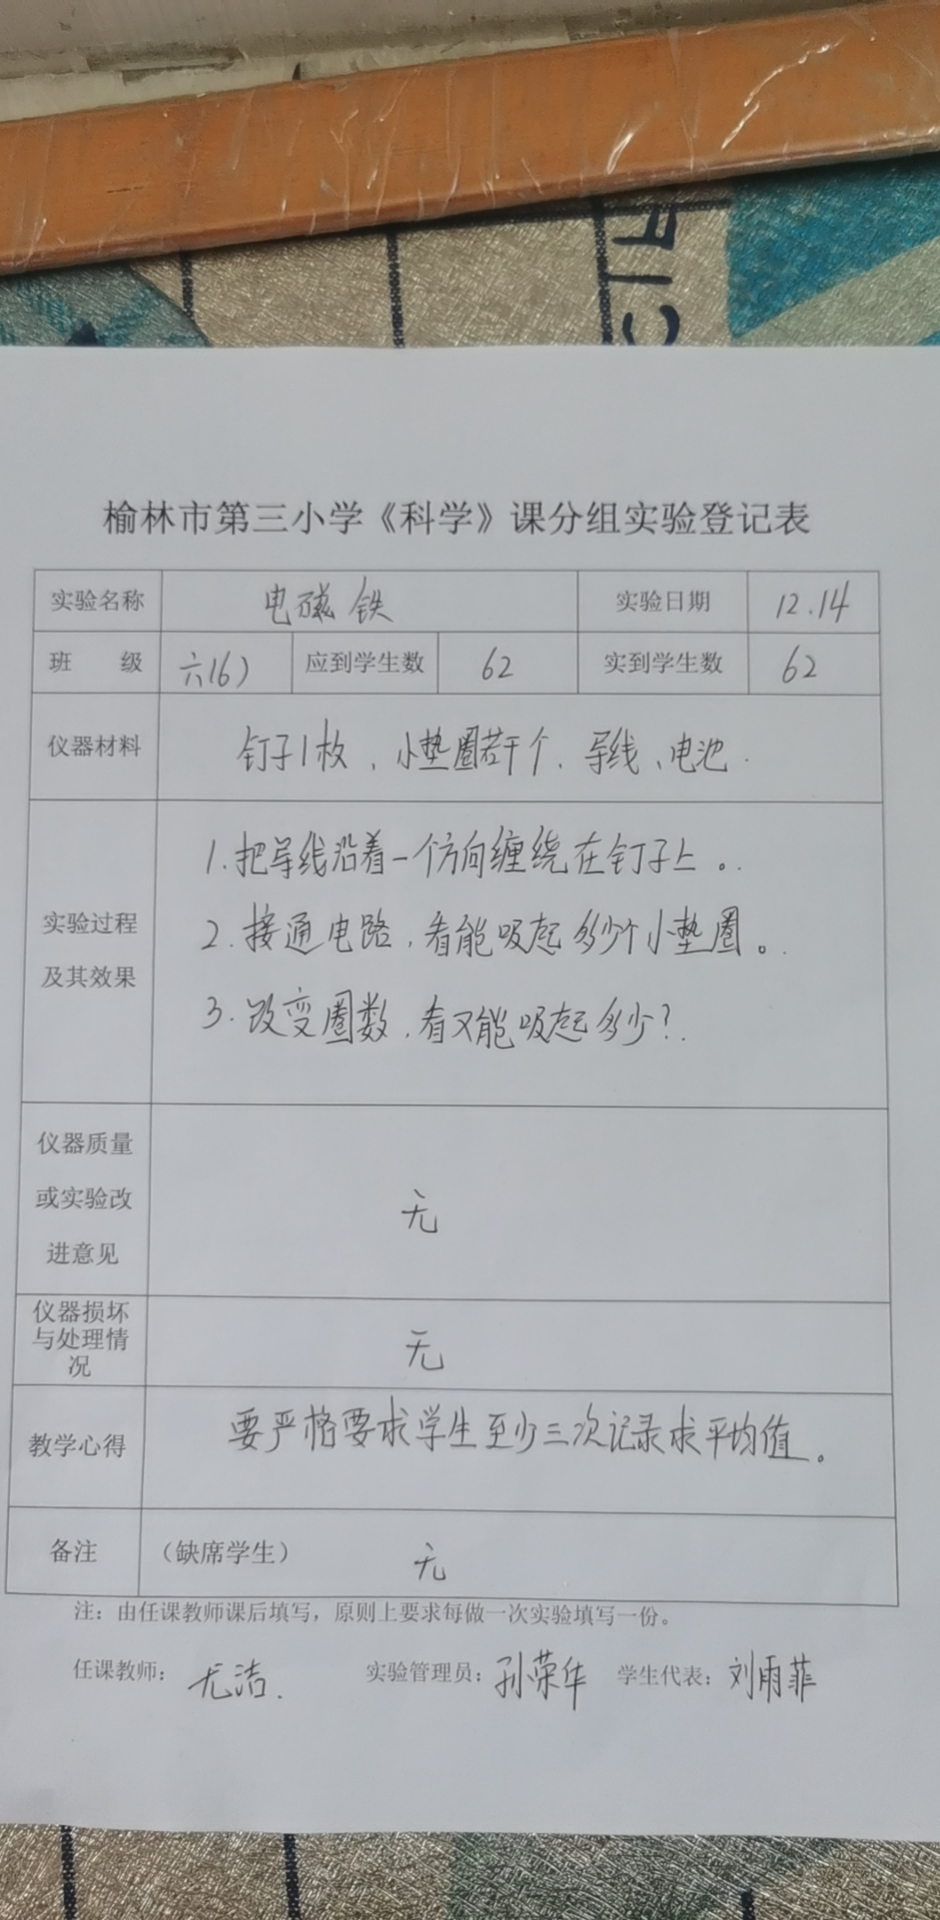 榆林市第三小学《科学》课分组实验登记表
实验名称 电磁铁 实验日期 12.14
班 级 六(6) 应到学生数 62 实到学生数 62
仪器材料 钉子1枚、小垫圈若干个、导线、电池.
1.把导线沿着一个方向缠绕在钉子上。
实验过程
及其效果
2.接通电路,看能吸起多少个小垫圈。
3.改变圈数,看又能吸起多少?
仪器质量
或实验改
进意见
无
仪器损坏
与处理情
况
无
教学心得 要严格要求学生至少三次记录求平均值。
备注 (缺席学生) 无
注:由任课教师课后填写,原则上要求每做一次实验填写一份。
任课教师: 尤洁. 实验管理员: 孙荣华 学生代表: 刘雨菲